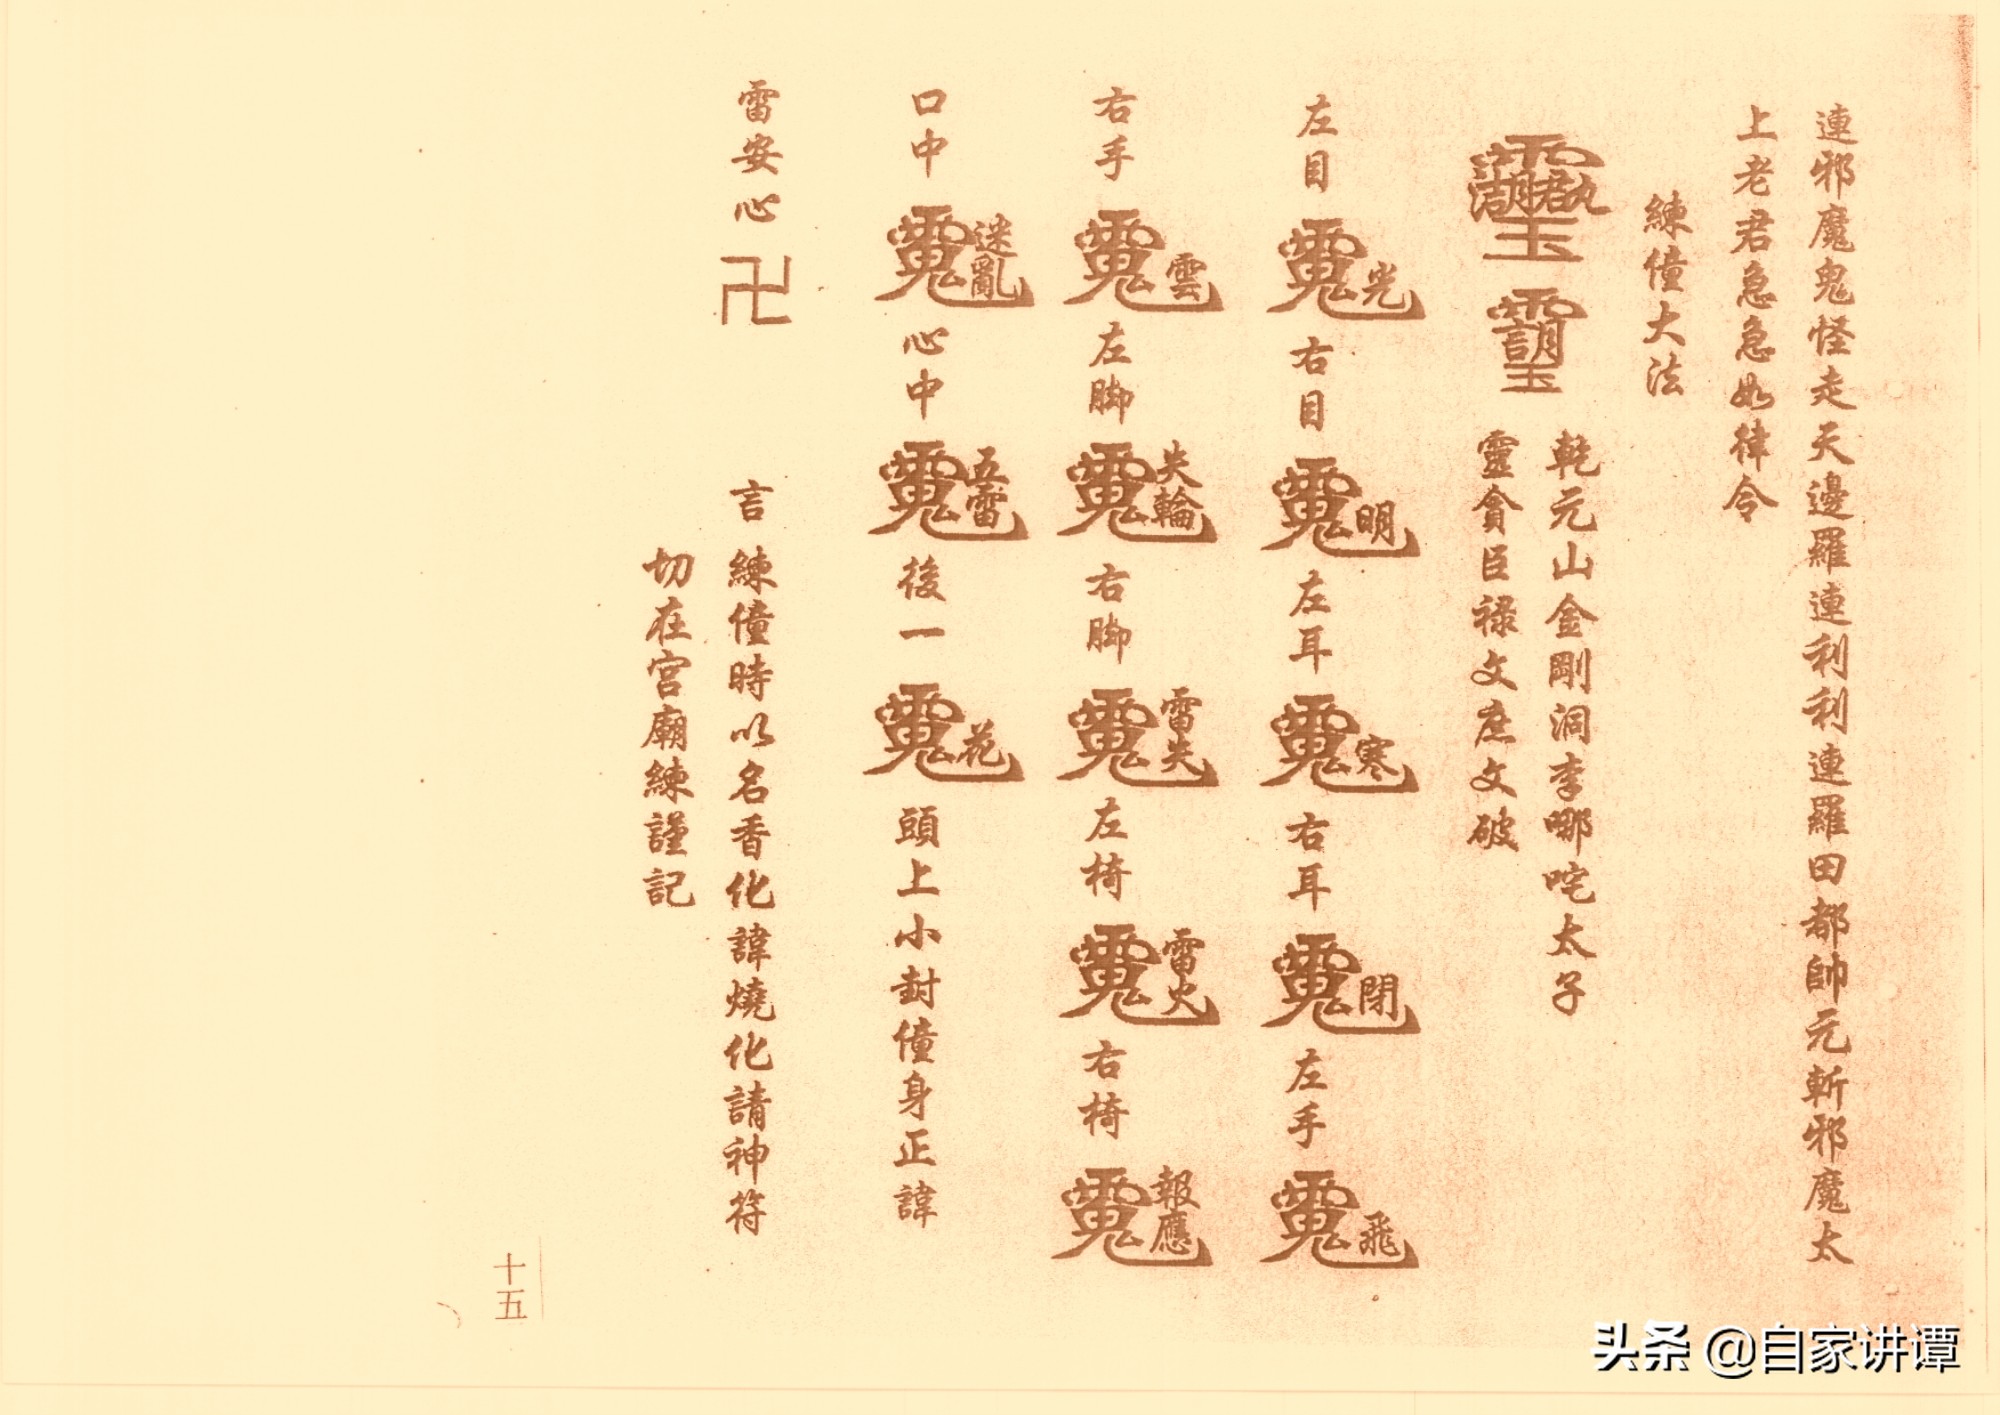 連邪魔鬼怪走天邊羅連利利連羅田都帥元斬邪魔太
上老君急急如律令
練僮大法
乾元山金剛洞李哪咤太子
靈貪巨祿文廉文破
左目 光 右目 明 左耳 寒 右耳 閉 左手 飛
右手 雲 左脚 失輪 右脚 雷失 左椅 雷火 右椅 報應
口中 迷亂 心中 五雷 後一 花 頭上小封僮身正諱
雷安心 卍 言 練僮時以名香化諱燒化請神符
切在宮廟練謹記
十五
头条 @自家讲谭